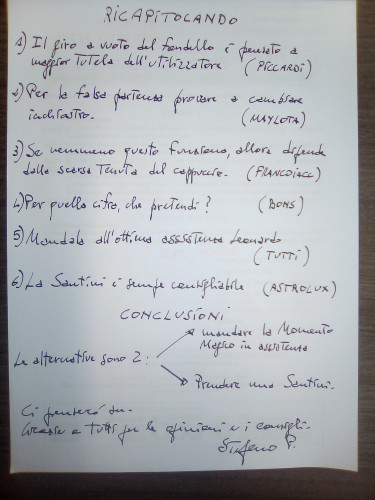 RICAPITOLANDO
1) Il giro a vuoto del fondello è pensato a
maggior tutela dell'utilizzatore (PICCARDI)
2) Per la falsa partenza provare a cambiare
inchiostro. (MAYLOTA)
3) Se nemmeno questo funziona, allora dipende
dalla scarsa tenuta del cappuccio. (FRANCOIACC)
4) Per quella cifra, che pretendi? (BONS)
5) Mandala all'ottima assistenza Leonardo
(TUTTI)
6) La Santini è sempre consigliabile (ASTROLUX)
CONCLUSIONI
Le alternative sono 2:
mandare la Momento
Magico in assistenza
Prendere una Santini.
Ci penserò su.
Grazie a tutti per le opinioni e i consigli.
Stefano P.